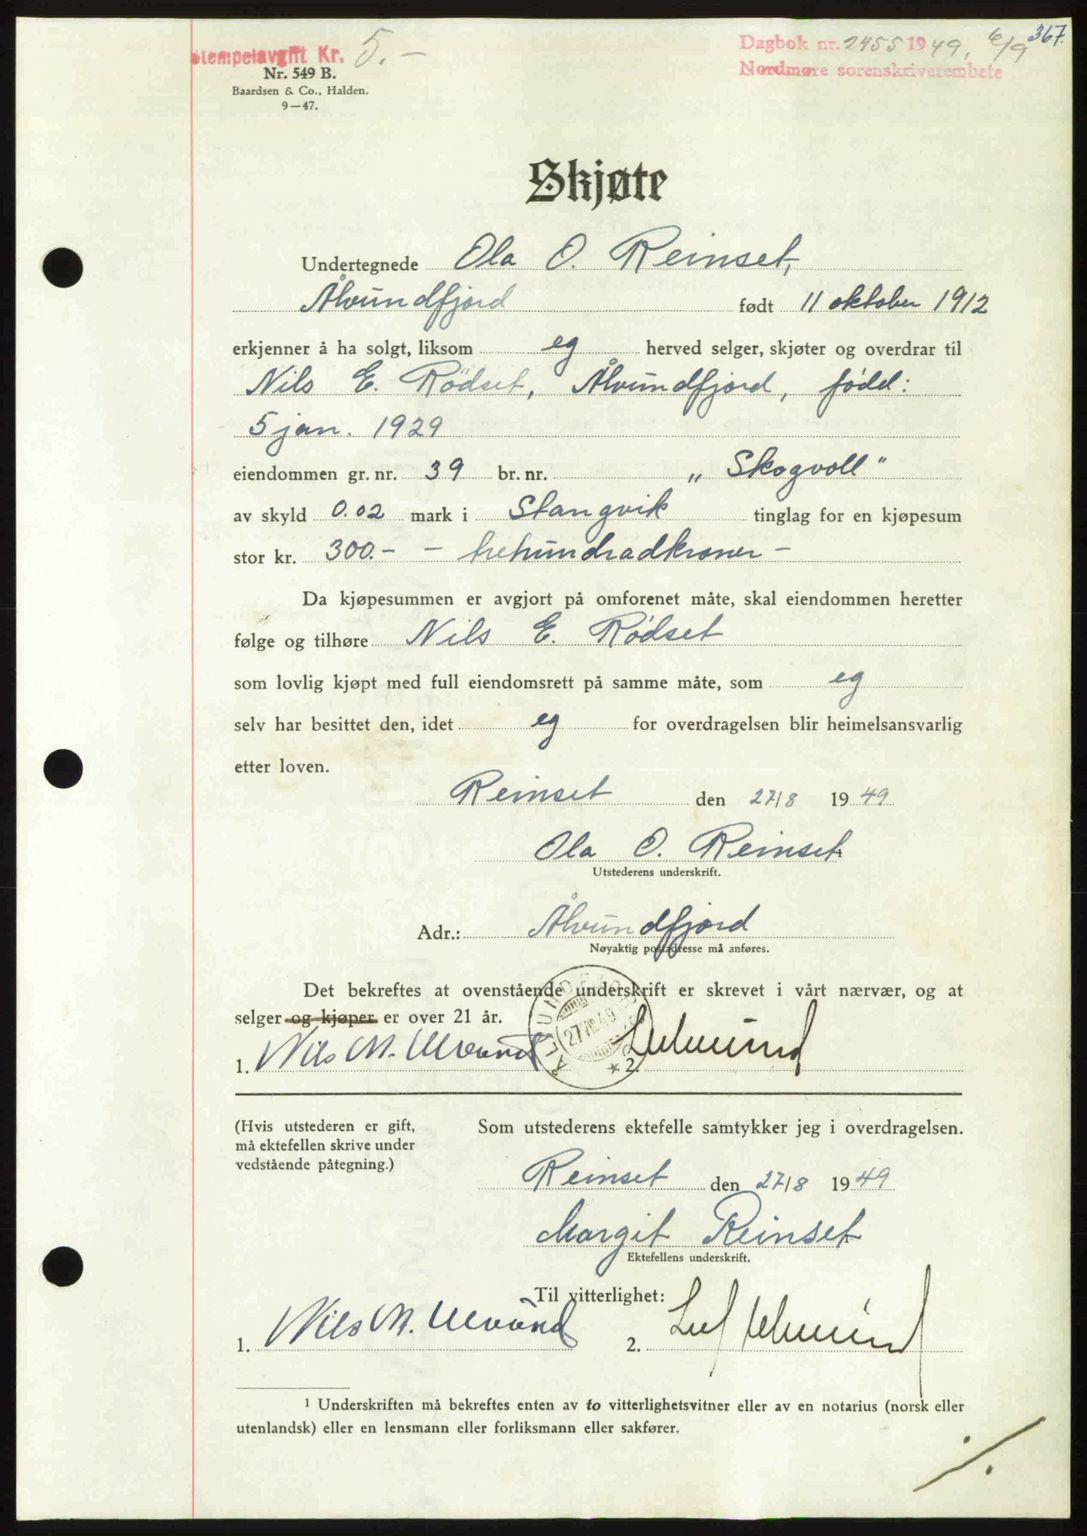 Stempelavgift Kr. 5.-
Nr. 549 B.
Baardsen & Co., Halden.
9-47.
Dagbok nr. 2455 1949, 6/9 367.
Nordmøre sorenskriverembete
Skjøte
Undertegnede Ola O. Reinset,
Ålvundfjord født 11 oktober 1912
erkjenner å ha solgt, liksom eg herved selger, skjøter og overdrar til
Nils E. Rödset, Ålvundfjord, fødd:
5 jan. 1929
eiendommen gr. nr. 39 br. nr. "Skogvoll"
av skyld 0.02 mark i Stangvik tinglag for en kjøpesum
stor kr. 300.- - trehundradkroner -
Da kjøpesummen er avgjort på omforenet måte, skal eiendommen heretter
følge og tilhøre Nils E. Rödset
som lovlig kjøpt med full eiendomsrett på samme måte, som eg
selv har besittet den, idet eg for overdragelsen blir heimelsansvarlig
etter loven.
Reinset den 27/8 1949
Ola O. Reinset
Utstederens underskrift.
Adr.: Ålvundfjord
Nøyaktig postadresse må anføres.
Det bekreftes at ovenstående underskrift er skrevet i vårt nærvær, og at
selger og kjøper er over 21 år.
1. Nils M. Ulvund 2.
(Hvis utstederen er gift,
må ektefellen skrive under
vedstående påtegning.)
Som utstederens ektefelle samtykker jeg i overdragelsen.
Reinset den 27/8 1949
Margit Reinset
Ektefellens underskrift.
Til vitterlighet:
1. Nils M. Ulvund 2.
1 Underskriften må bekreftes enten av to vitterlighetsvitner eller av en notarius (norsk eller
utenlandsk) eller en lensmann eller forliksmann eller sakfører.